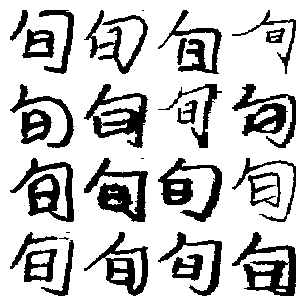 旬旬旬旬
旬旬旬旬
旬旬旬旬
旬旬旬旬